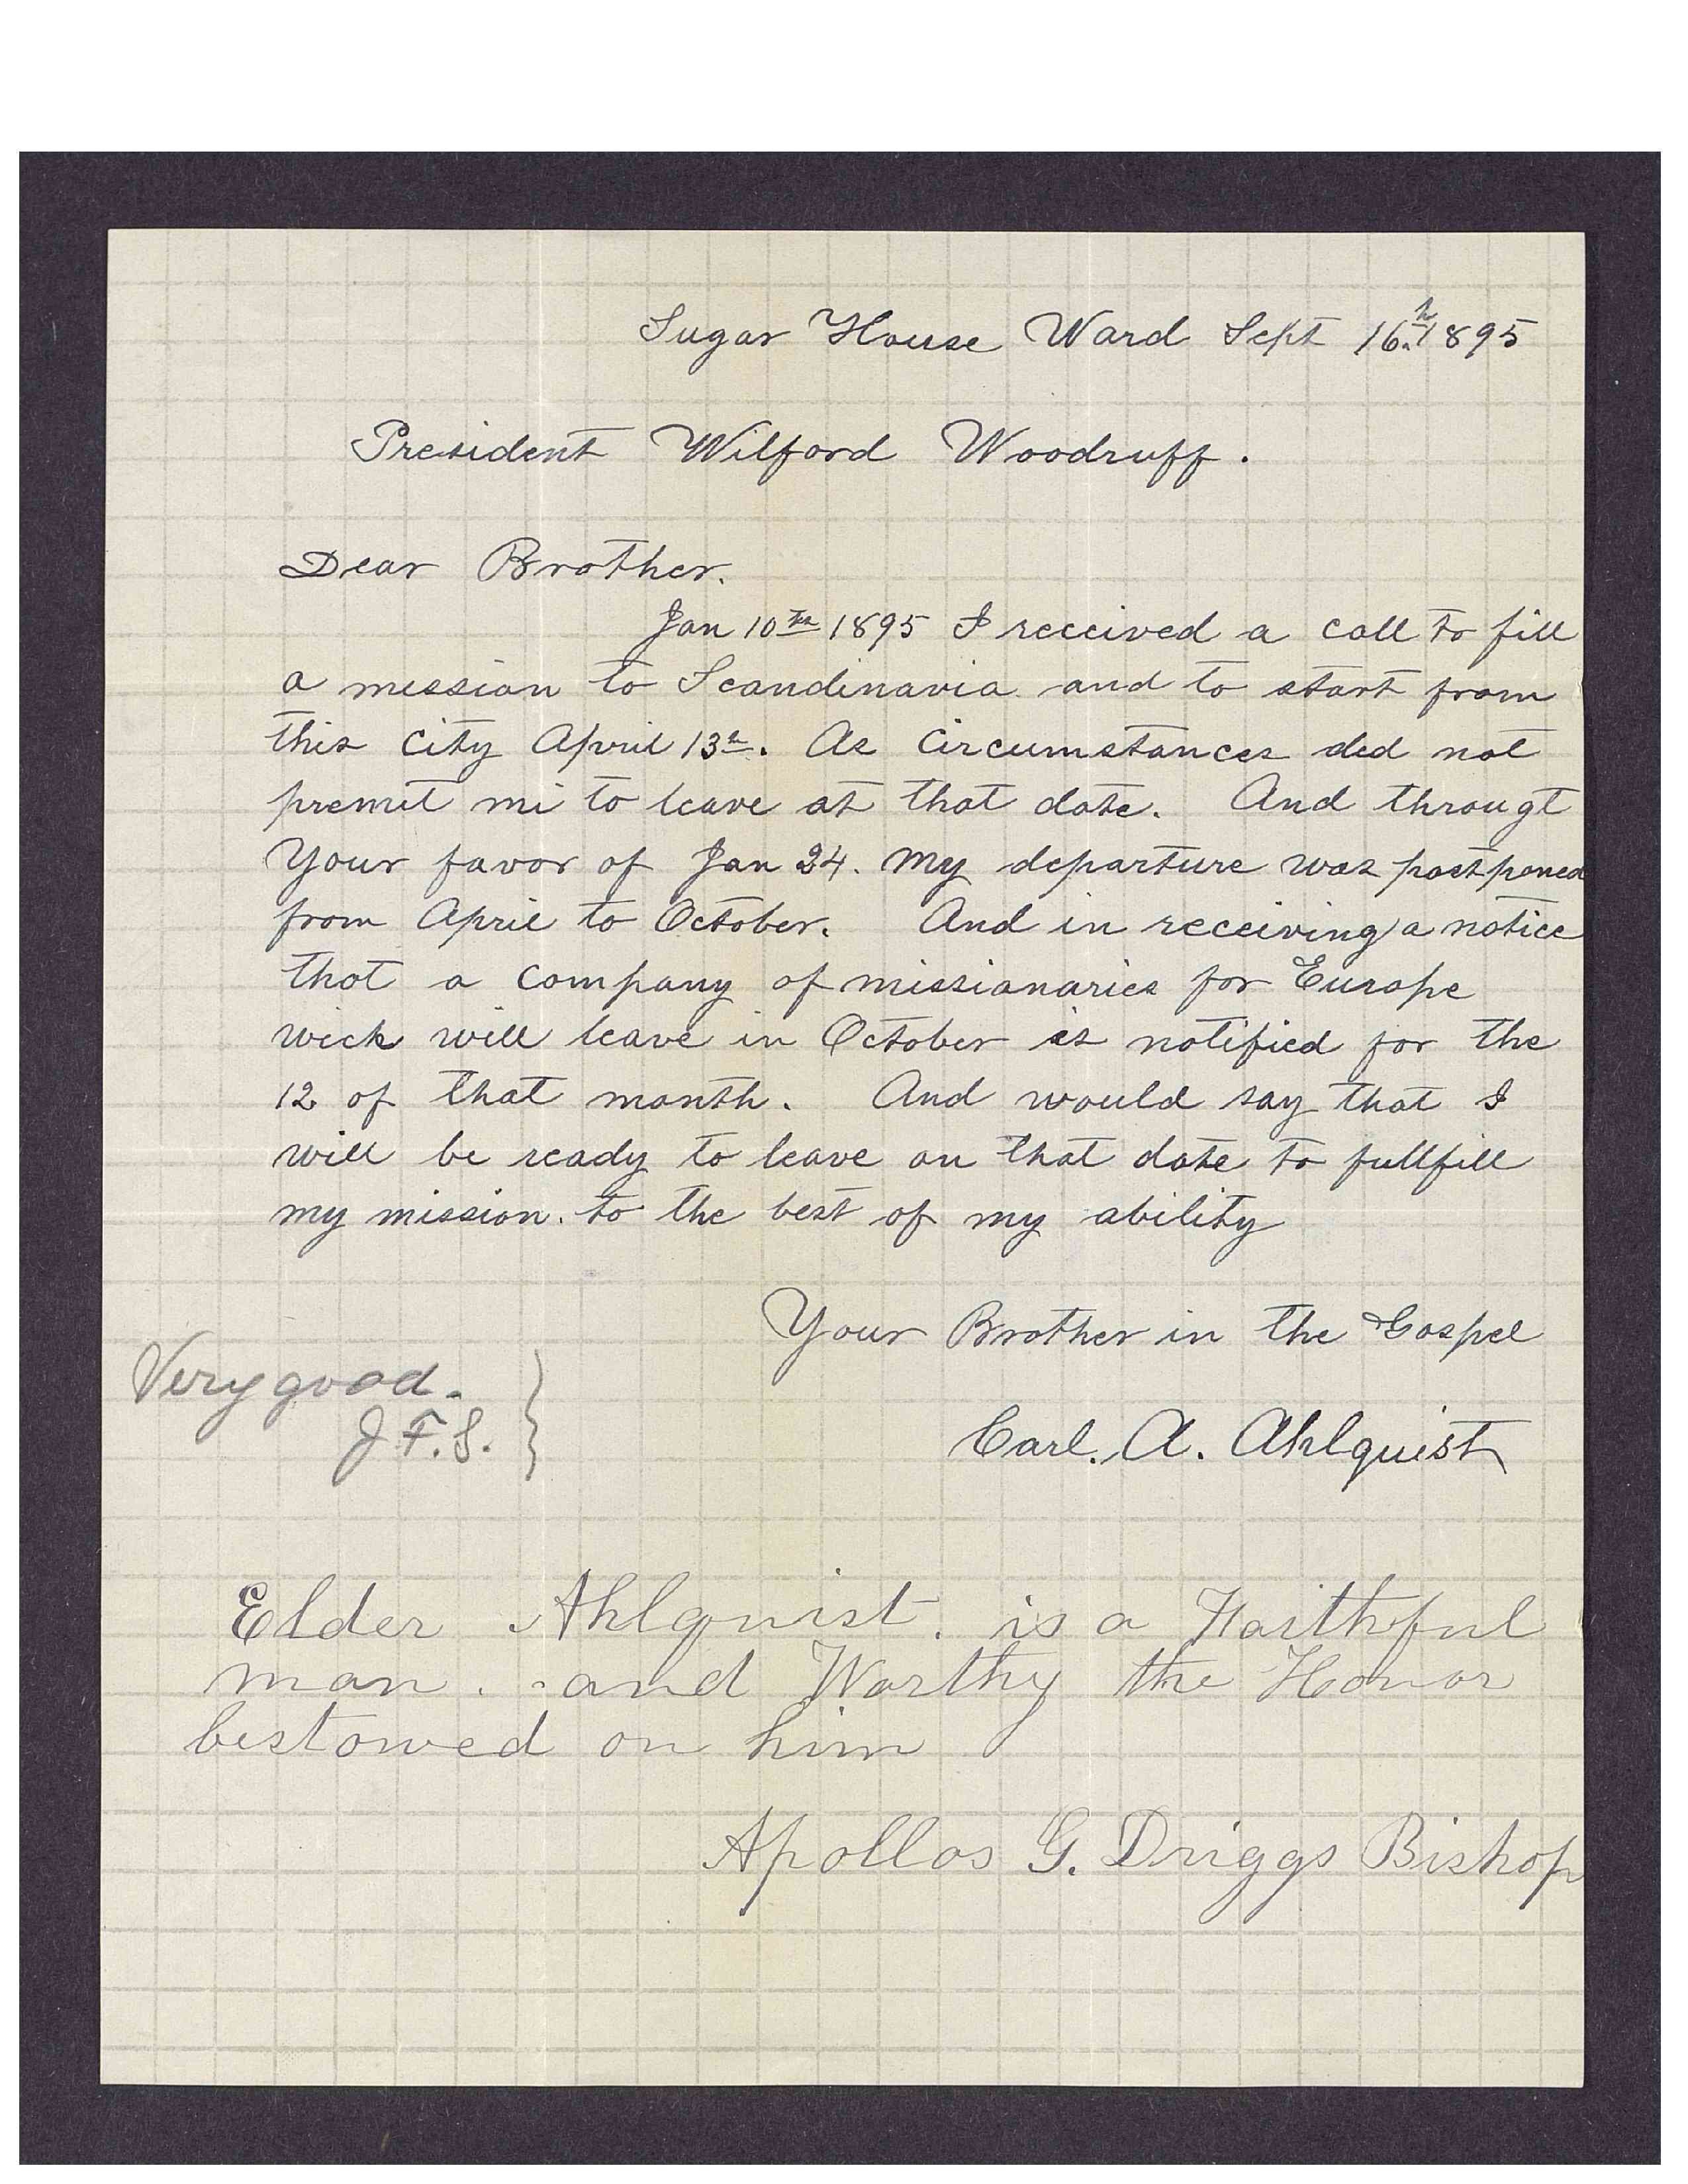 Sugar House Ward Sept 16.h 1895
President Wilford Woodruff.
Dear Brother.
Jan 10th 1895 I received a call to fill
a mission to Scandinavia and to start from
this city April 13h. As circumstances did not
premit mi to leave at that date. And througt
Your favor of Jan 24. my departure was postponed
from April to October. And in receiving a notice
that a company of missionaries for Europe
wick will leave in October is notified for the
12 of that month. And would say that I
will be ready to leave on that date to fullfill
my mission. to the best of my ability
Your Brother in the Gospel
Very good.
J.F.S.
Carl. A. Ahlquist
Elder Ahlquist. is a Faithful
man. and Worthy the Honor
bestowed on him
Apollos G. Driggs Bishop